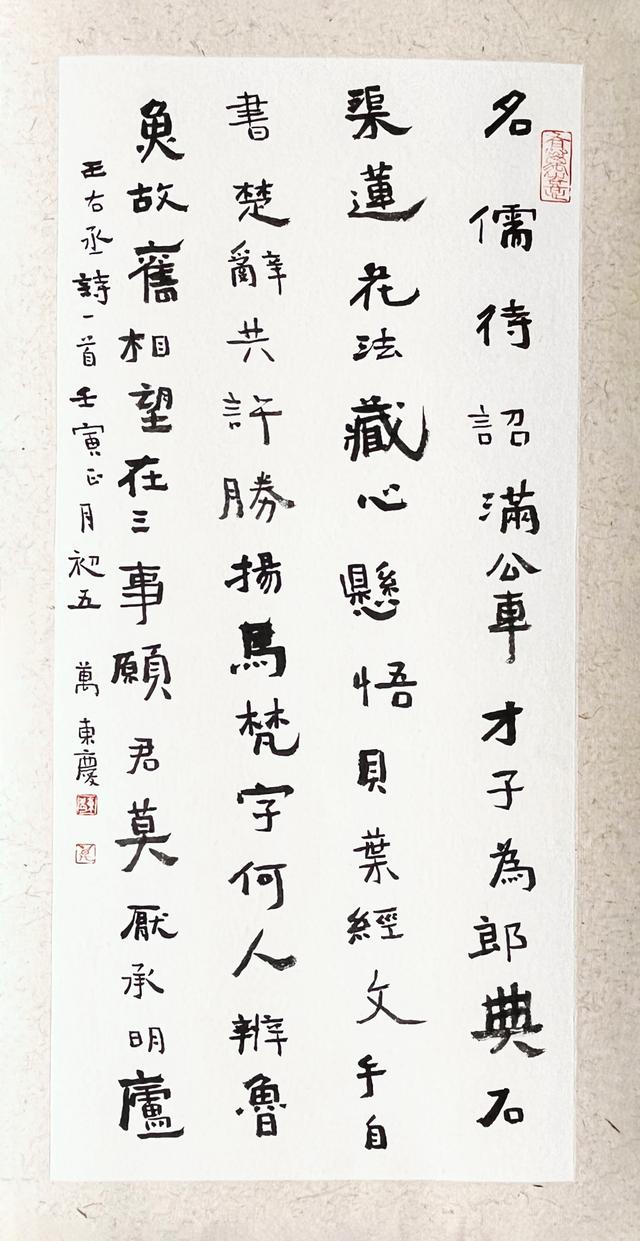 名儒待詔滿公車才子為郎典石
渠蓮花法藏心懸悟貝葉經文手自
書楚辭共許勝揚馬梵字何人辨魯
魚故舊相望在三事願君莫厭承明廬
王右丞詩一首壬寅正月初五 萬東慶